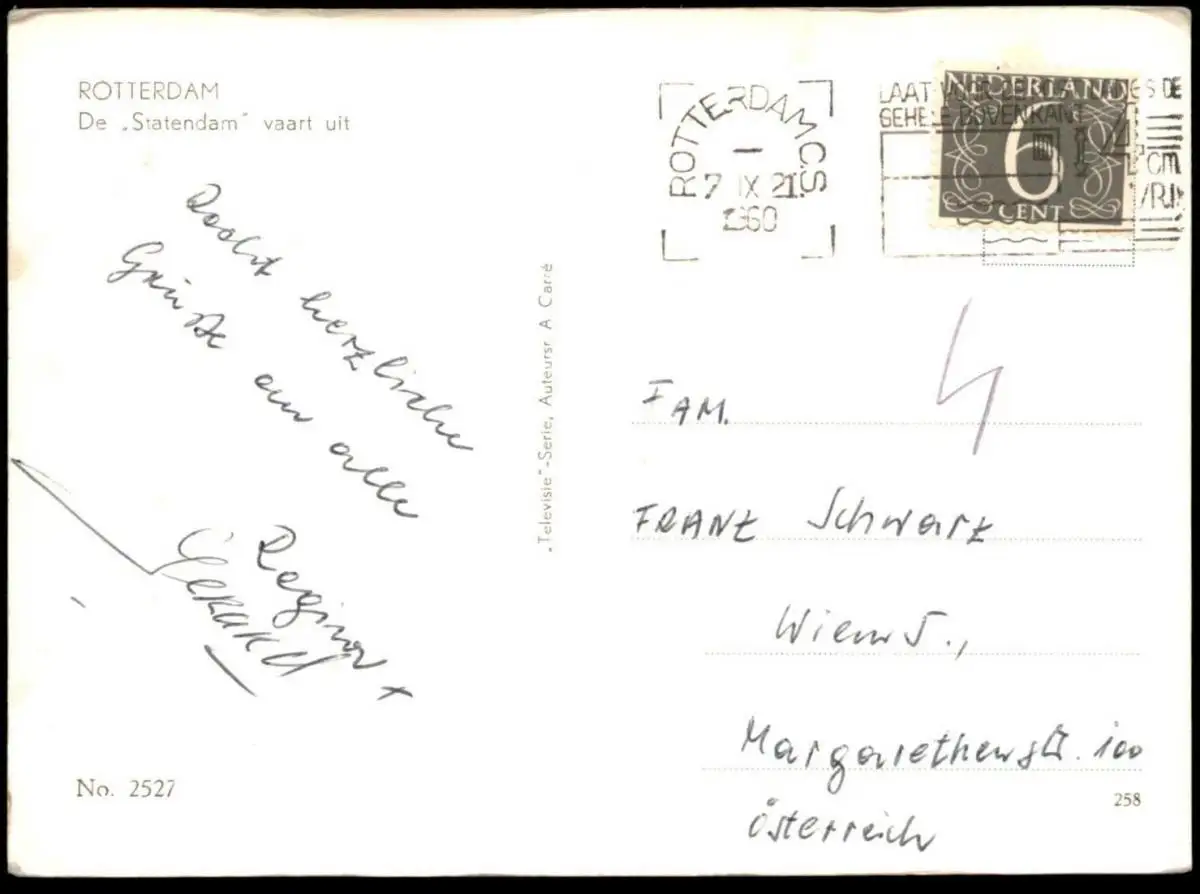 ROTTERDAM
De „Statendam" vaart uit
ROTTERDAM C.S.
7 IX 21
1960
LAAT
GEHELE BOVENKANT
NEDERLAND
6
CENT
4 cm
VRIJ
Recht herzliche
Grüße an alle
Regina +
Gerhard
„Televisie"-Serie, Auteursr A Carré
FAM.
FRANZ Schwarz
Wien 5.,
Margarethenstr. 100
Österreich
No. 2527
258